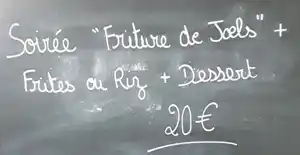 Soirée "Friture de Joels" +
Frites ou Riz + Dessert
20€